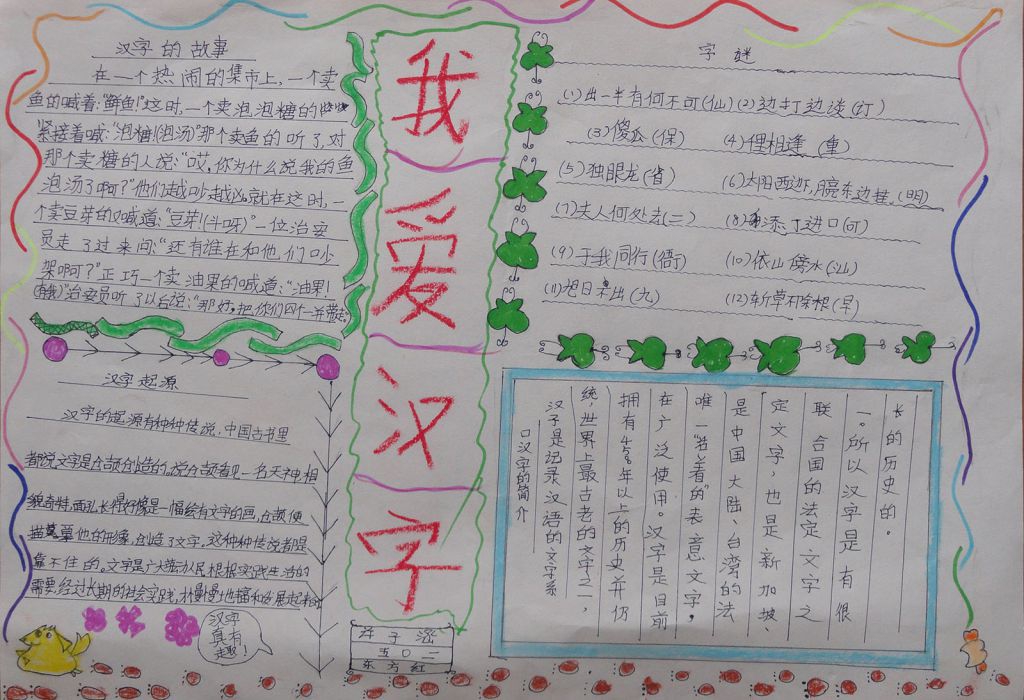 汉字的故事
在一个热闹的集市上,一个卖
鱼的喊着:"鲜鱼!"这时,一个卖泡泡糖的
紧接着喊:"泡糖!(泡汤)"那个卖鱼的听了,对
那个卖糖的人说:"哎,你为什么说我的鱼
泡汤了啊?"他们越吵越凶。就在这时,一
个卖豆芽的又喊道:"豆芽!(斗呀)"一位治安
员走了过来问:"还有谁在和他们吵
架啊?"正巧一个卖油果的喊道:"油果!
(有我)"治安员听了以后说:"那好,把你们四个一并带走。
汉字起源
汉字的起源有种种传说,中国古书里
都说文字是仓颉创造的。说仓颉看见一名天神,相
貌奇特,面孔长得好像是一幅绘有文字的画,仓颉便
描摹他的形像,创造了文字。这种种传说都是
靠不住的。文字是广大劳动人民根据实践生活的
需要,经过长期的社会实践,才慢慢地
汉字
真有
趣!
我
爱
汉
字
五〇二
东方红
字谜
(1)出一半有何不可(仙)(2)边打边谈(订)
(3)傻瓜(保) (4)俚相逢(重)
(5)独眼龙(省) (6)太阳西边下,月亮东边挂。(明)
(7)夫人何处去(二) (8)添丁进口(叮)
(9)于我同行(衙) (10)依山傍水(汕)
(11)旭日东出(九) (12)斩草不除根(早)
口汉字的简介
汉子是记录汉语的文字系
统,世界上最古老的文字之一,
拥有4500年以上的历史并仍
在广泛使用。汉字是目前
唯一"名著的"表意文字,
是中国大陆、台湾的法
定文字,也是新加坡、
联合国的法定文字之
一。所以汉字是有很
长的历史的。